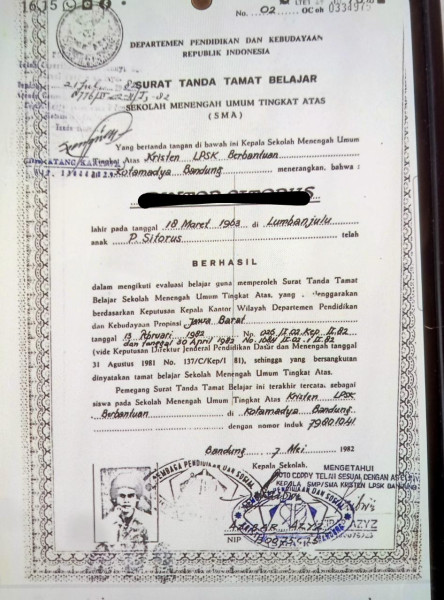 16.15
No. 02 OC oh 0334975
DEPARTEMEN PENDIDIKAN DAN KEBUDAYAAN
REPUBLIK INDONESIA
SURAT TANDA TAMAT BELAJAR
SEKOLAH MENENGAH UMUM TINGKAT ATAS
(SMA)
Yang bertanda tangan di bawah ini Kepala Sekolah Menengah Umum
Tingkat Atas Kristen LPSK Berbantuan
Kotamadya Bandung menerangkan, bahwa :
lahir pada tanggal 18 Maret 1963 di Lumbanjulu
anak P. Sitorus telah
BERHASIL
dalam mengikuti evaluasi belajar guna memperoleh Surat Tanda Tamat
Belajar Sekolah Menengah Umum Tingkat Atas, yang lenggarakan
berdasarkan Keputusan Kepala Kantor Wilayah Departemen Pendidikan
dan Kebudayaan Propinsi Jawa Barat
tanggal 13 Pebruari 1982 No.
dan tanggal 30 April 1982 No.
(vide Keputusan Direktur Jenderal Pendidikan Dasar dan Menengah tanggal
31 Agustus 1981 No. 137/C/Kep/I 81), sehingga yang bersangkutan
dinyatakan tamat belajar Sekolah Menengah Umum Tingkat Atas.
Pemegang Surat Tanda Tamat Belajar ini terakhir tercatat, sebagai
siswa pada Sekolah Menengah Umum Tingkat Atas Kristen LPSK
Berbantuan di Kotamadya Bandung
dengan nomor induk 79801041
Bandung, 7 Mei 1982
Kepala Sekolah,
MENGETAHUI
FOTO COPPY TELAH SESUAI DENGAN ASLINYA
KEPALA SMP/SMA KRISTEN LPSK BANDUNG
LEMBAGA PENDIDIKAN DAN SOSIAL
AZBAR AZYZ
NIP